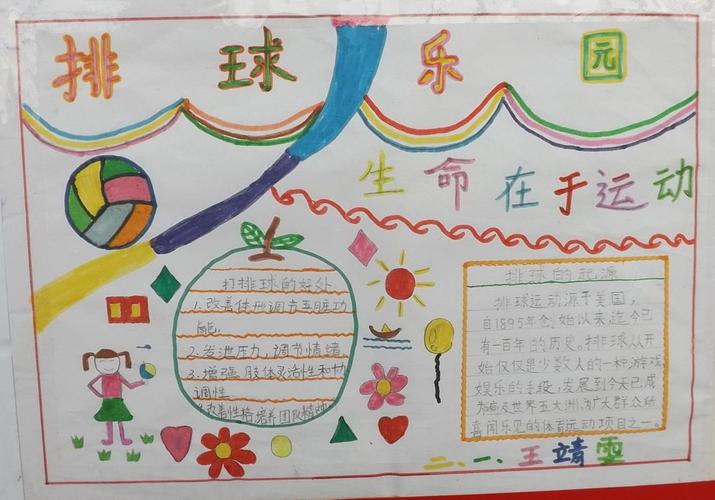 排球乐园
生命在于运动
打排球的好处
1.改善体形调节五脏功
能.
2.发泄压力,调节情绪.
3.增强肢体灵活性和协
调性.
4.改善性格培养团队精神
排球的起源
排球运动源于美国,
自1895年创始以来迄今已
有一百年的历史。排球从开
始仅仅是少数人的一种游戏
娱乐的手段,发展到今天已成
为遍及世界五大洲,为广大群众所
喜闻乐见的体育运动项目之一。
二、一、王靖雯